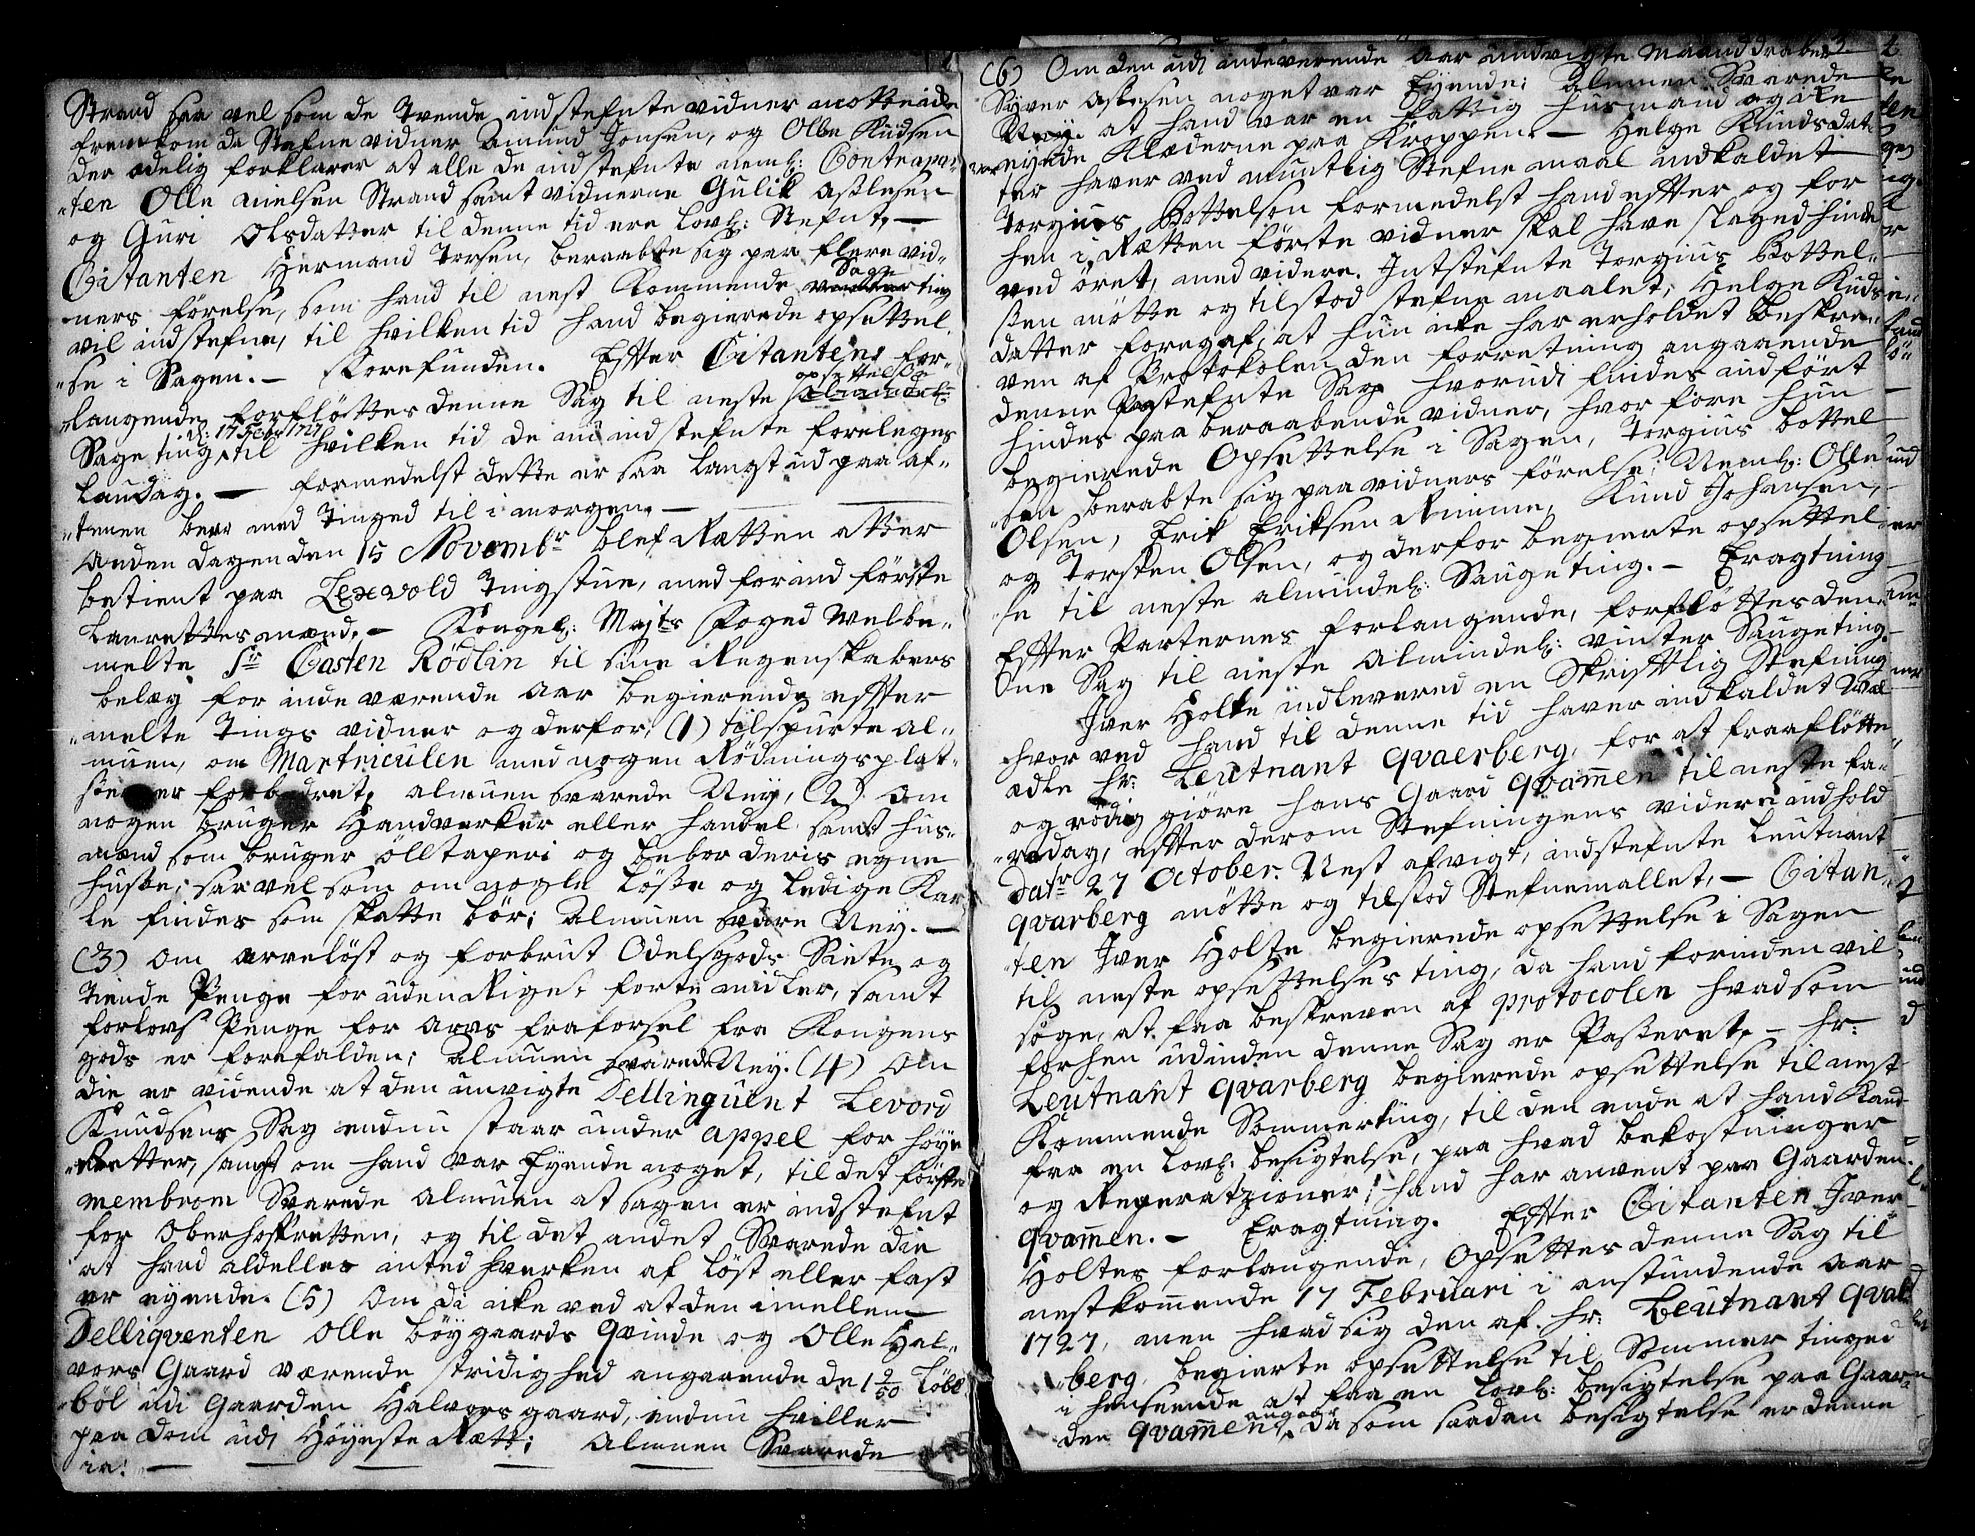 Strand saa vel som de Tvende indstefnte vidner motte icke
fremkom da Stefne vidner Amund Jonsen, og Olle Kudsen
der ædelig forklarer at alle de indstefnte neml: Contrapar-
"ten Olle Nielsen Strand samt vidnerne Gulik Aslesen
og Guri Olsdatter til denne tid ere lovl: Stefnt, —
Citanten Hermand Torsen, beraabte sig paa flere vid-
ners förelse, som hand til nest Kommende Sage ting
vil indstefne, til hvilken tid hand begierede opsettel
"se i Sagen. — Forefunden. Efter Citantens for-
"langende, forfløttes denne Sag til neste opsettelse
Sage ting, d: 17 Feb: 1727 til hvilken tid de nu indstefnte foreleges
Laudag. — formedelst dette er saa langt ud paa af-
"tenen bero med Tinged til i morgen. —
Anden dagen den 15 Novembr blef Retten atter
betient paa Lexvold Tingstue, med forind förste
Laurettesmænd. — Kongel: Mayts Foged Welbe-
melte Sr Casten Rödlin til sine Regenskabers
belæg for indeværende Aar begierende effter
"melte Tings vidner og derfor; (1) tilspurte al-
muen, om Martriculen med nogen Rödningsplat-
ser er forbedret, almuen svarede Ney, (2) Om
nogen bruger Handverker eller handel samt hus-
mænd som bruger ölltaperi og bebor deris egne
huse; saavel som om nogle löse og ledige Kar
le findes som skatte bör; Almuen svare Ney. —
(3) Om arvelöst og forbrut Odelsgods Siette og
tiende Penge for uden Riget forte midler, samt
forlovs Penge for arvs fraforsel fra Kongens
gods er forefalden; Almuen svarede Ney. (4) Om
die er vidende at den unvigte Dellinquent Levord
Knudsens Sag endnu staar under appel for höye
Retter, samt om hand var Eyende noget, til det förste
membrom Svarede Almuen at Sagen er indstefnt
for Oberhoffretten, og til det andet Svarede die
at hand aldelles inted hverken af löst eller fast
er eyende. (5) Om di icke ved at den imellem
Delliqventen Olle böygaards Qvinde og Olle Hal-
vors Gaard værende stridighed angaaende de 1 9/50 Löbe
"böl udi Gaarden Halvors gaard, endnu hviller
paa dom udi Höyeste Rett; Almuen Svarede
ia! —
(6) Om den udi indeværende Aar undvigte Manddraber
Syver Astesen noget var Eyende; Almuen Svarede
Ney at hand var en fattig husmand og icke
var eyende Klæderne paa Kroppen. — Helge Knudsdat-
ter haver ved muntlig Stefnemaal indkaldet
Torgius Bottelson formedelst hand effter og for
hen i Retten förte vidner skal have slaged hinde
ved öret, med videre. Intstefnte Torgius Bottel-
sen mötte og tilstod stefnemaalet, Helge Kuds
datter foregaf, at hun icke har erholdet beskre-
ven af Protokolen den forretning angaaende
denne paastefnte Sag hvorudi findes indfört
hindes paaberaabende vidner, hvorfore hun
begierede Opsettelse i Sagen, Torgius Bottel
"sen berabte sig paa vidners förelse: Neml: Olle
Olsen, Erik Eriksen Rimme, Knud Johansen,
og Torsten Olsen, og derfor begierte opsettel
"se til neste almindel: Sauge ting. — Eragtning
Effter Parternes forlangende, forfløttes den-
ne Sag til neste Almindel: vinter Saugeting.
Iver Holte indlevered en Skriftlig Stefning
hvor ved hand til denne tid haver indkaldet Wæl
ædle hr: Leutnant Qvaerberg, for at fraaflötte
og rödig giöre hans Gaard Qvammen til neste fa-
redag, effter derom Stefningens videre indhold
datr 27 October. Nest afvigt, indstefnte Leutnant
Qvarberg mötte og tilstod Stefnemallet, — Citan-
"ten Iver Holte begierede opsettelse i Sagen
til neste opsettelses ting, da hand forinden vil
söge, at faa beskreven af protocolen hvad som
forhen udinden denne Sag er Passeret, — hr:
Leutnant Qvarberg begierede opsettelse til nest
Kommende Sommerting, til den ende at hand Kand
faa en lovl: besigtelse, paa hvad bekostninger
og Reparatzioner, hand har anvent paa Gaarden
Qvammen. — Eragtning. Effter Citanten Iver
Holtes forlangende, Opsettes denne Sag til
nestkommende 17 Februari i anstundende Aar
1727, men hvad sig den af. hr: Leutnant Qval
berg, begierte opsettelse til Sommer tinged
i henseende at faa en lovl: besigtelse paa Gaar-
den Qvammen angaar, da som saadan besigtelse er denne